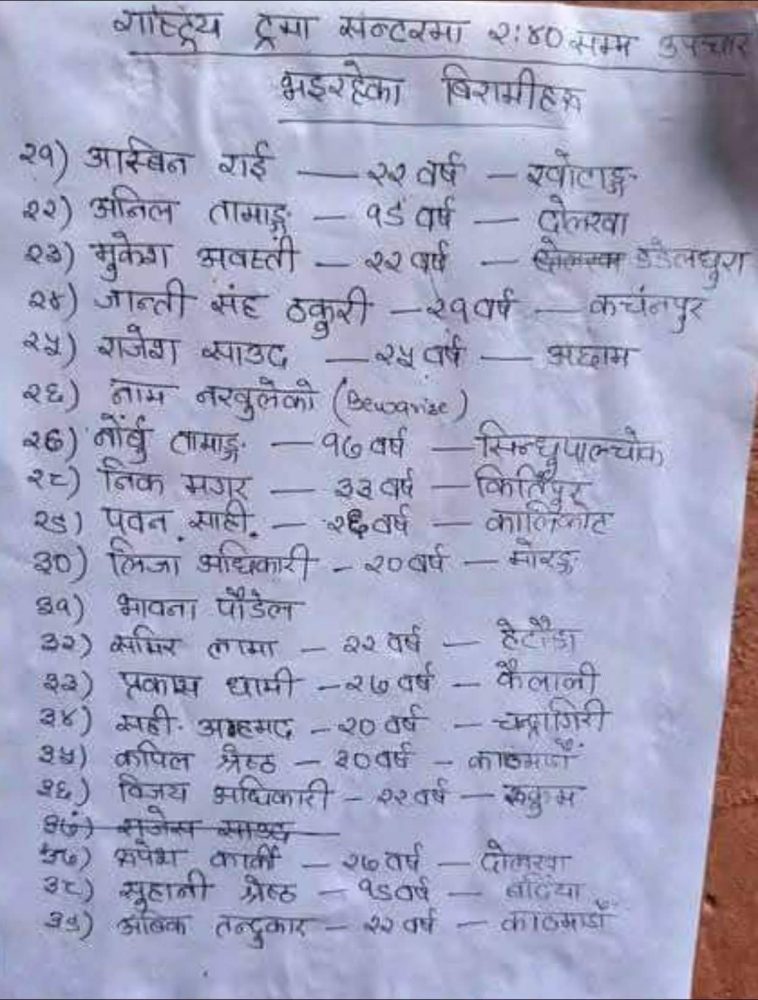 राष्ट्रिय ट्रमा सेन्टरमा २:४० सम्म उपचार
भइरहेका बिरामीहरू
२१) आस्बिन राई — २२ वर्ष — खोटाङ्ग
२२) अनिल तामाङ्ग — १९ वर्ष — दोलखा
२३) मुकेश अवस्ती — २२ वर्ष — डडेलधुरा
२४) जान्ती संह ठकुरी — २१ वर्ष — कचंनपुर
२५) राजेश साउद — २५ वर्ष — अछाम
२६) नाम नखुलेको (Bewarise)
२७) नोर्बु तामाङ्ग — १७ वर्ष — सिन्धुपाल्चोक
२८) निक मगर — ३३ वर्ष — किर्तिपुर
२९) पवन साही — २६ वर्ष — कालिकोट
३०) लिजा अधिकारी - २० वर्ष — मोरङ्ग
३१) भावना पौडेल
३२) समिर लामा — २२ वर्ष — हेटौडा
३३) प्रकास धामी — २७ वर्ष — कैलाली
३४) सही अहमद — २० वर्ष — चन्द्रागिरी
३५) कपिल श्रेष्ठ — ३० वर्ष - काठमाडौं
३६) विजय अधिकारी — २२ वर्ष — रुकुम
३७) राजेस साउद
३७) रुपेश कार्की — २७ वर्ष — दोलखा
३८) सुहानी श्रेष्ठ — १९ वर्ष — बर्दिया
३९) अबिक तन्दुकार — २२ वर्ष — काठमाडौं